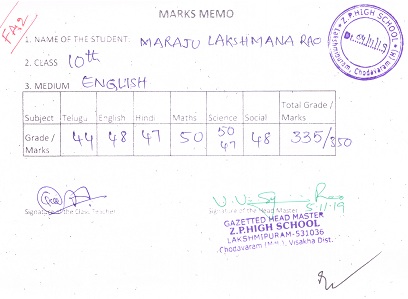 FA2
MARKS MEMO
1. NAME OF THE STUDENT: MARAJU LAKSHMANA RAO
2. CLASS 10th
3. MEDIUM ENGLISH
Subject Telugu English Hindi Maths Science Social Total Grade / Marks
Grade / Marks 44 48 47 50 50 47 48 335/350
Signature of the Class Teacher
Signature of the Head Master 5.11.19
GAZETTED HEAD MASTER
Z.P.HIGH SCHOOL
LAKSHMIPURAM-531036
Chodavaram (M), Visakha Dist.
Z.P.HIGH SCHOOL
Lakshmipuram, Chodavaram (M)